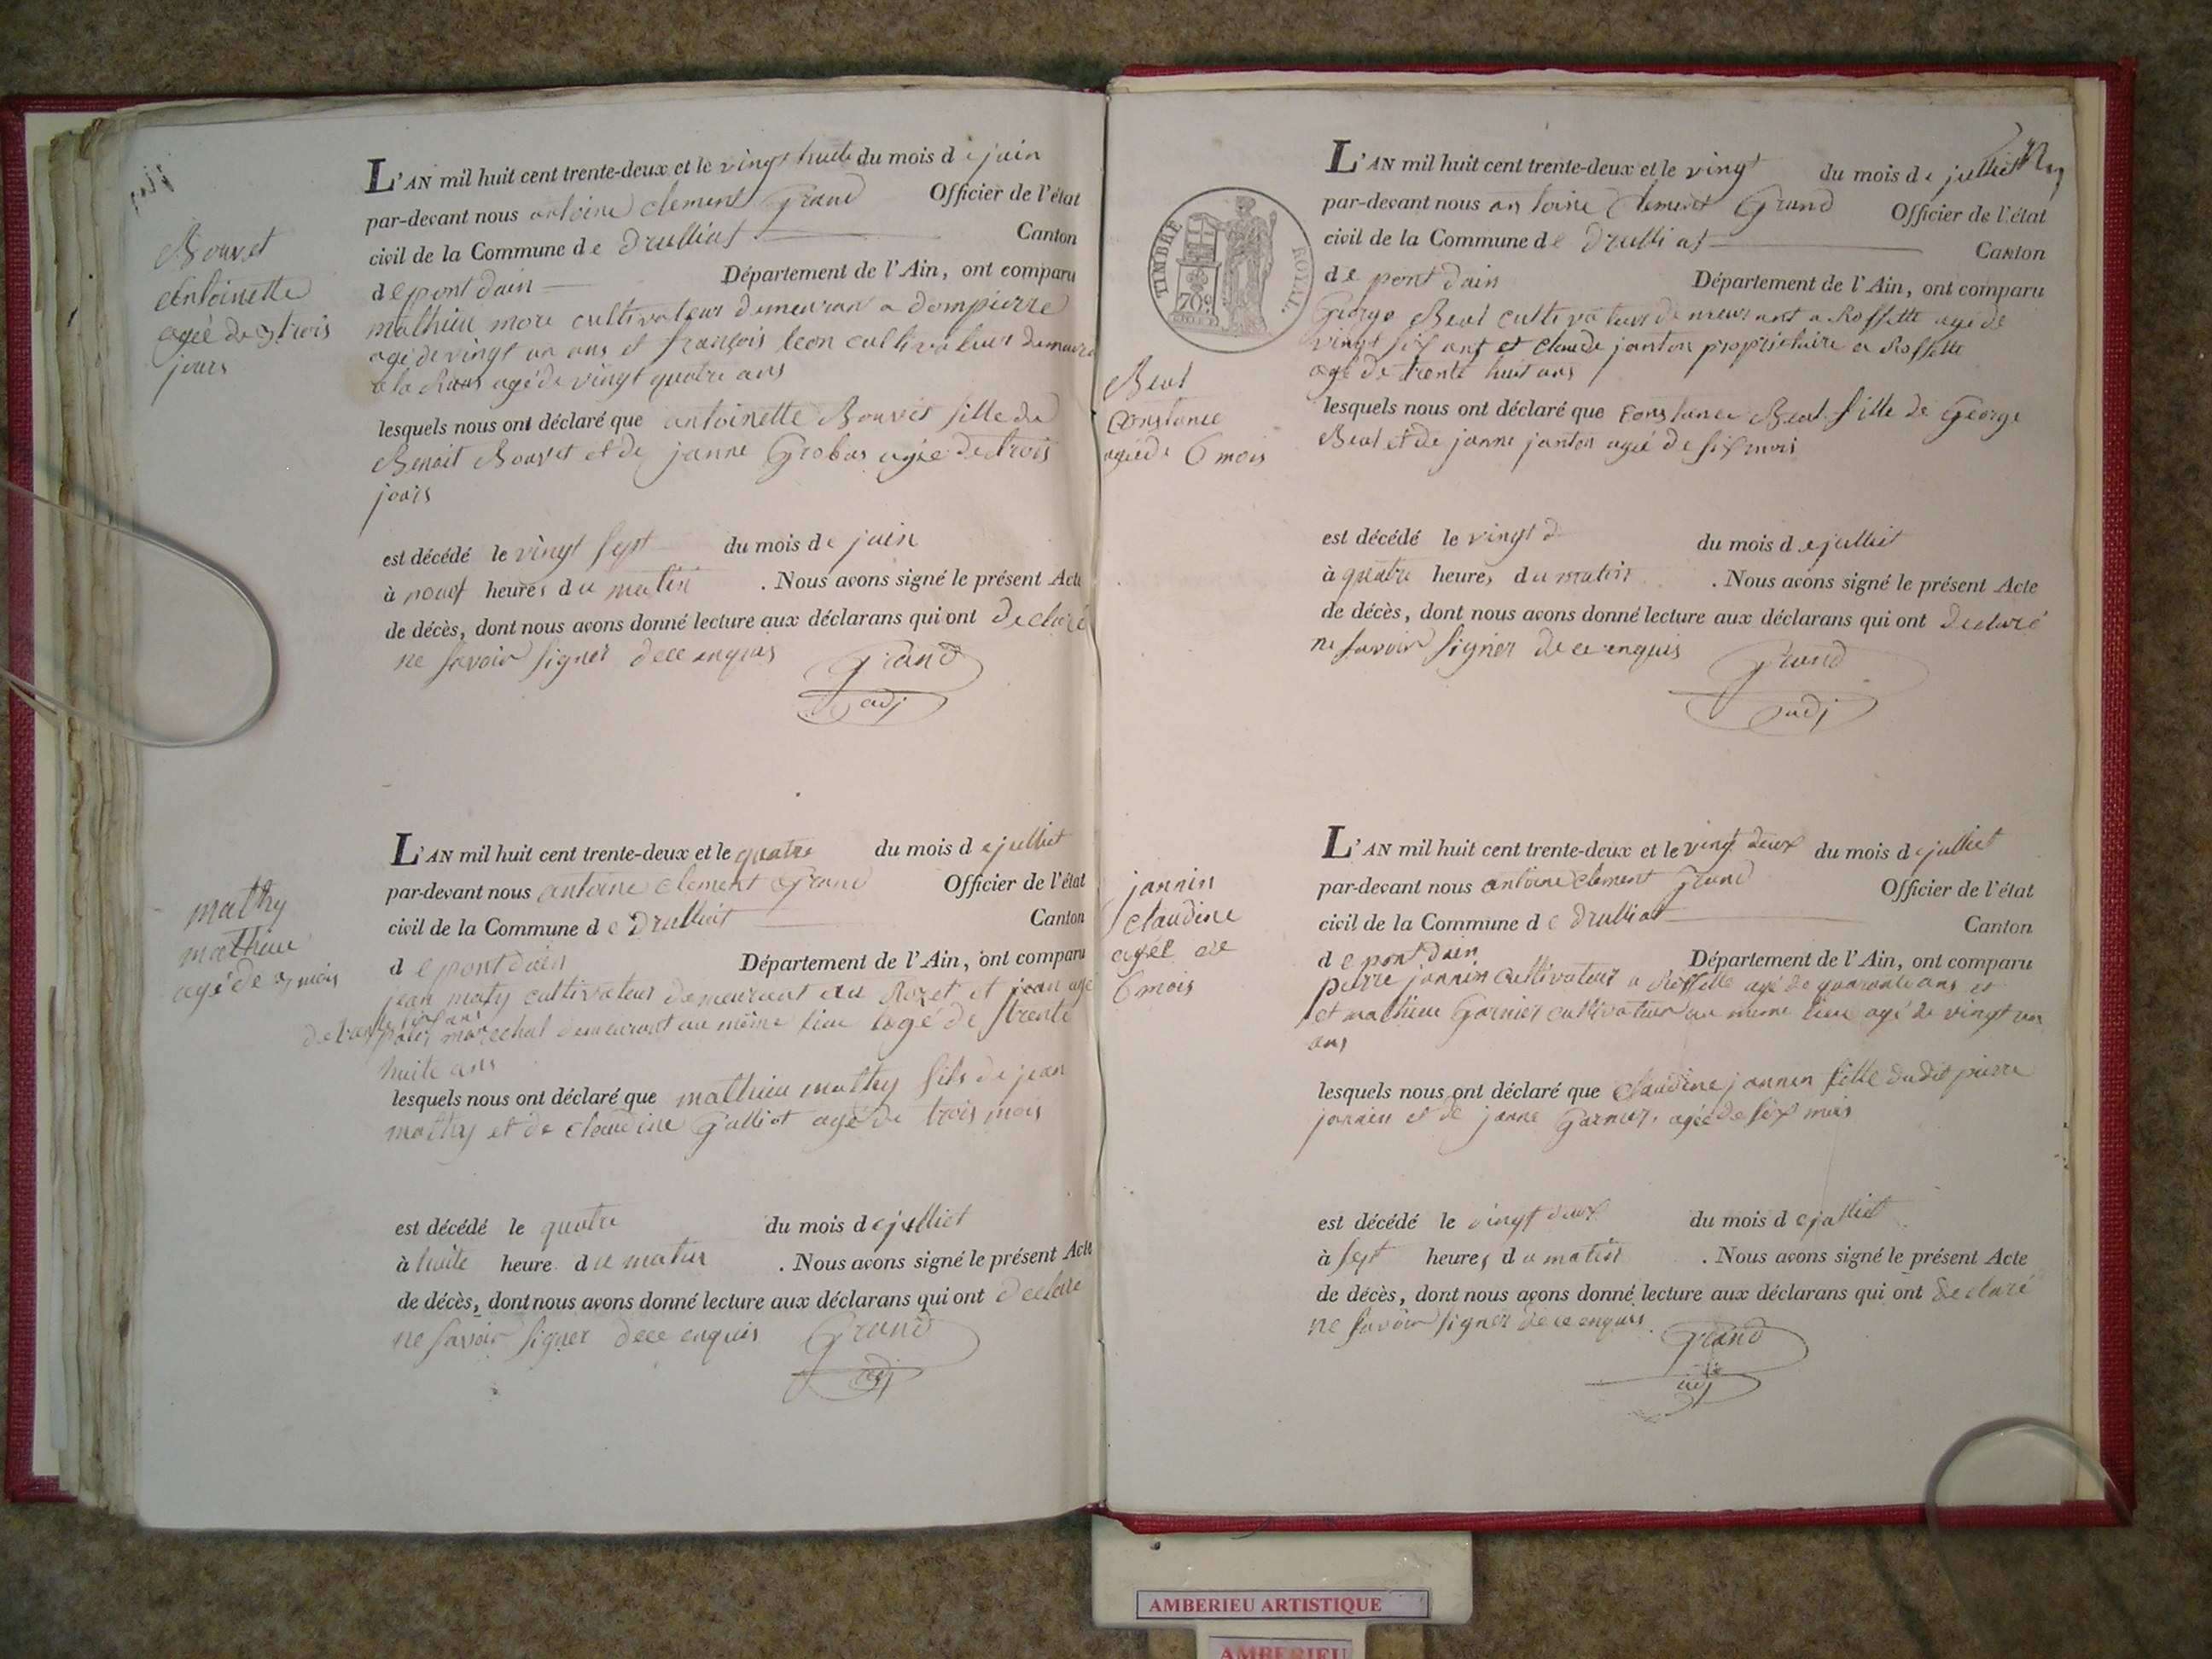 Bouvet
Antoinette
agée de trois
jours
L'AN mil huit cent trente-deux et le vingt huite du mois de juin
par-devant nous antoine clement Grand Officier de l'état
civil de la Commune de Drulliat Canton
de pont dain Département de l'Ain, ont comparu
mathieu more cultivateur demeuran a dompierre
agé de vingt un ans et françois leon cultivateur
a la agé de vingt quatre ans
lesquels nous ont déclaré que antoinette Bouvet fille de
Benoit Bouvet et de janne Grobas agée de trois
jours
est décédé le vingt sept du mois de juin
à nouf heures du matin . Nous avons signé le présent Acte
de décès, dont nous avons donné lecture aux déclarans qui ont declaré
ne savoir signer dece enquis Grand
adj
mathy
mathieu
agé de 3 mois
L'AN mil huit cent trente-deux et le quatre du mois de julliet
par-devant nous antoine clement Grand Officier de l'état
civil de la Commune de Drulliat Canton
de pont dain Département de l'Ain, ont comparu
jean maty cultivateur demeurant au Rozet et jean agé
de trante six ans
marechal demeurant au même lieu agé de trente
huite ans
lesquels nous ont déclaré que mathieu mathy fils de jean
mathy et de claudine Gulliot agé de trois mois
est décédé le quatre du mois de julliet
à huite heure du matin . Nous avons signé le présent Acte
de décès, dont nous avons donné lecture aux déclarans qui ont declaré
ne savoir signer dece enquis Grand
adj
TIMBRE ROYAL
70c
Beal
Constance
agée de 6 mois
L'AN mil huit cent trente-deux et le vingt du mois de julliet
par-devant nous antoine Clement Grand Officier de l'état
civil de la Commune de Drulliat Canton
de pont dain Département de l'Ain, ont comparu
George Beal cultivateur demeurant a Rossette agé de
vingt six ans et claude janton propriétaire a Rossette
agé de trente huit ans
lesquels nous ont déclaré que Constance Beal fille de George
Beal et de janne janton agée de six mois
est décédé le vingt du mois de julliet
à quatre heures du matin . Nous avons signé le présent Acte
de décès, dont nous avons donné lecture aux déclarans qui ont declaré
ne savoir signer de ce enquis Grand
adj
jannin
claudine
agée de
6 mois
L'AN mil huit cent trente-deux et le vingt deux du mois de julliet
par-devant nous antoine clement Grand Officier de l'état
civil de la Commune de Drulliat Canton
de pont dain Département de l'Ain, ont comparu
pierre jannin cultivateur a Rossette agé de quarante ans et
et mathieu Garnier cultivateur au meme lieu agé de vingt un
ans
lesquels nous ont déclaré que claudine jannin fille dudit pierre
jannin et de janne Garnier, agée de six mois
est décédé le vingt deux du mois de julliet
à sept heures du matin . Nous avons signé le présent Acte
de décès, dont nous avons donné lecture aux déclarans qui ont declaré
ne savoir signer de ce enquis Grand
adj
AMBERIEU ARTISTIQUE
AMBERIEU